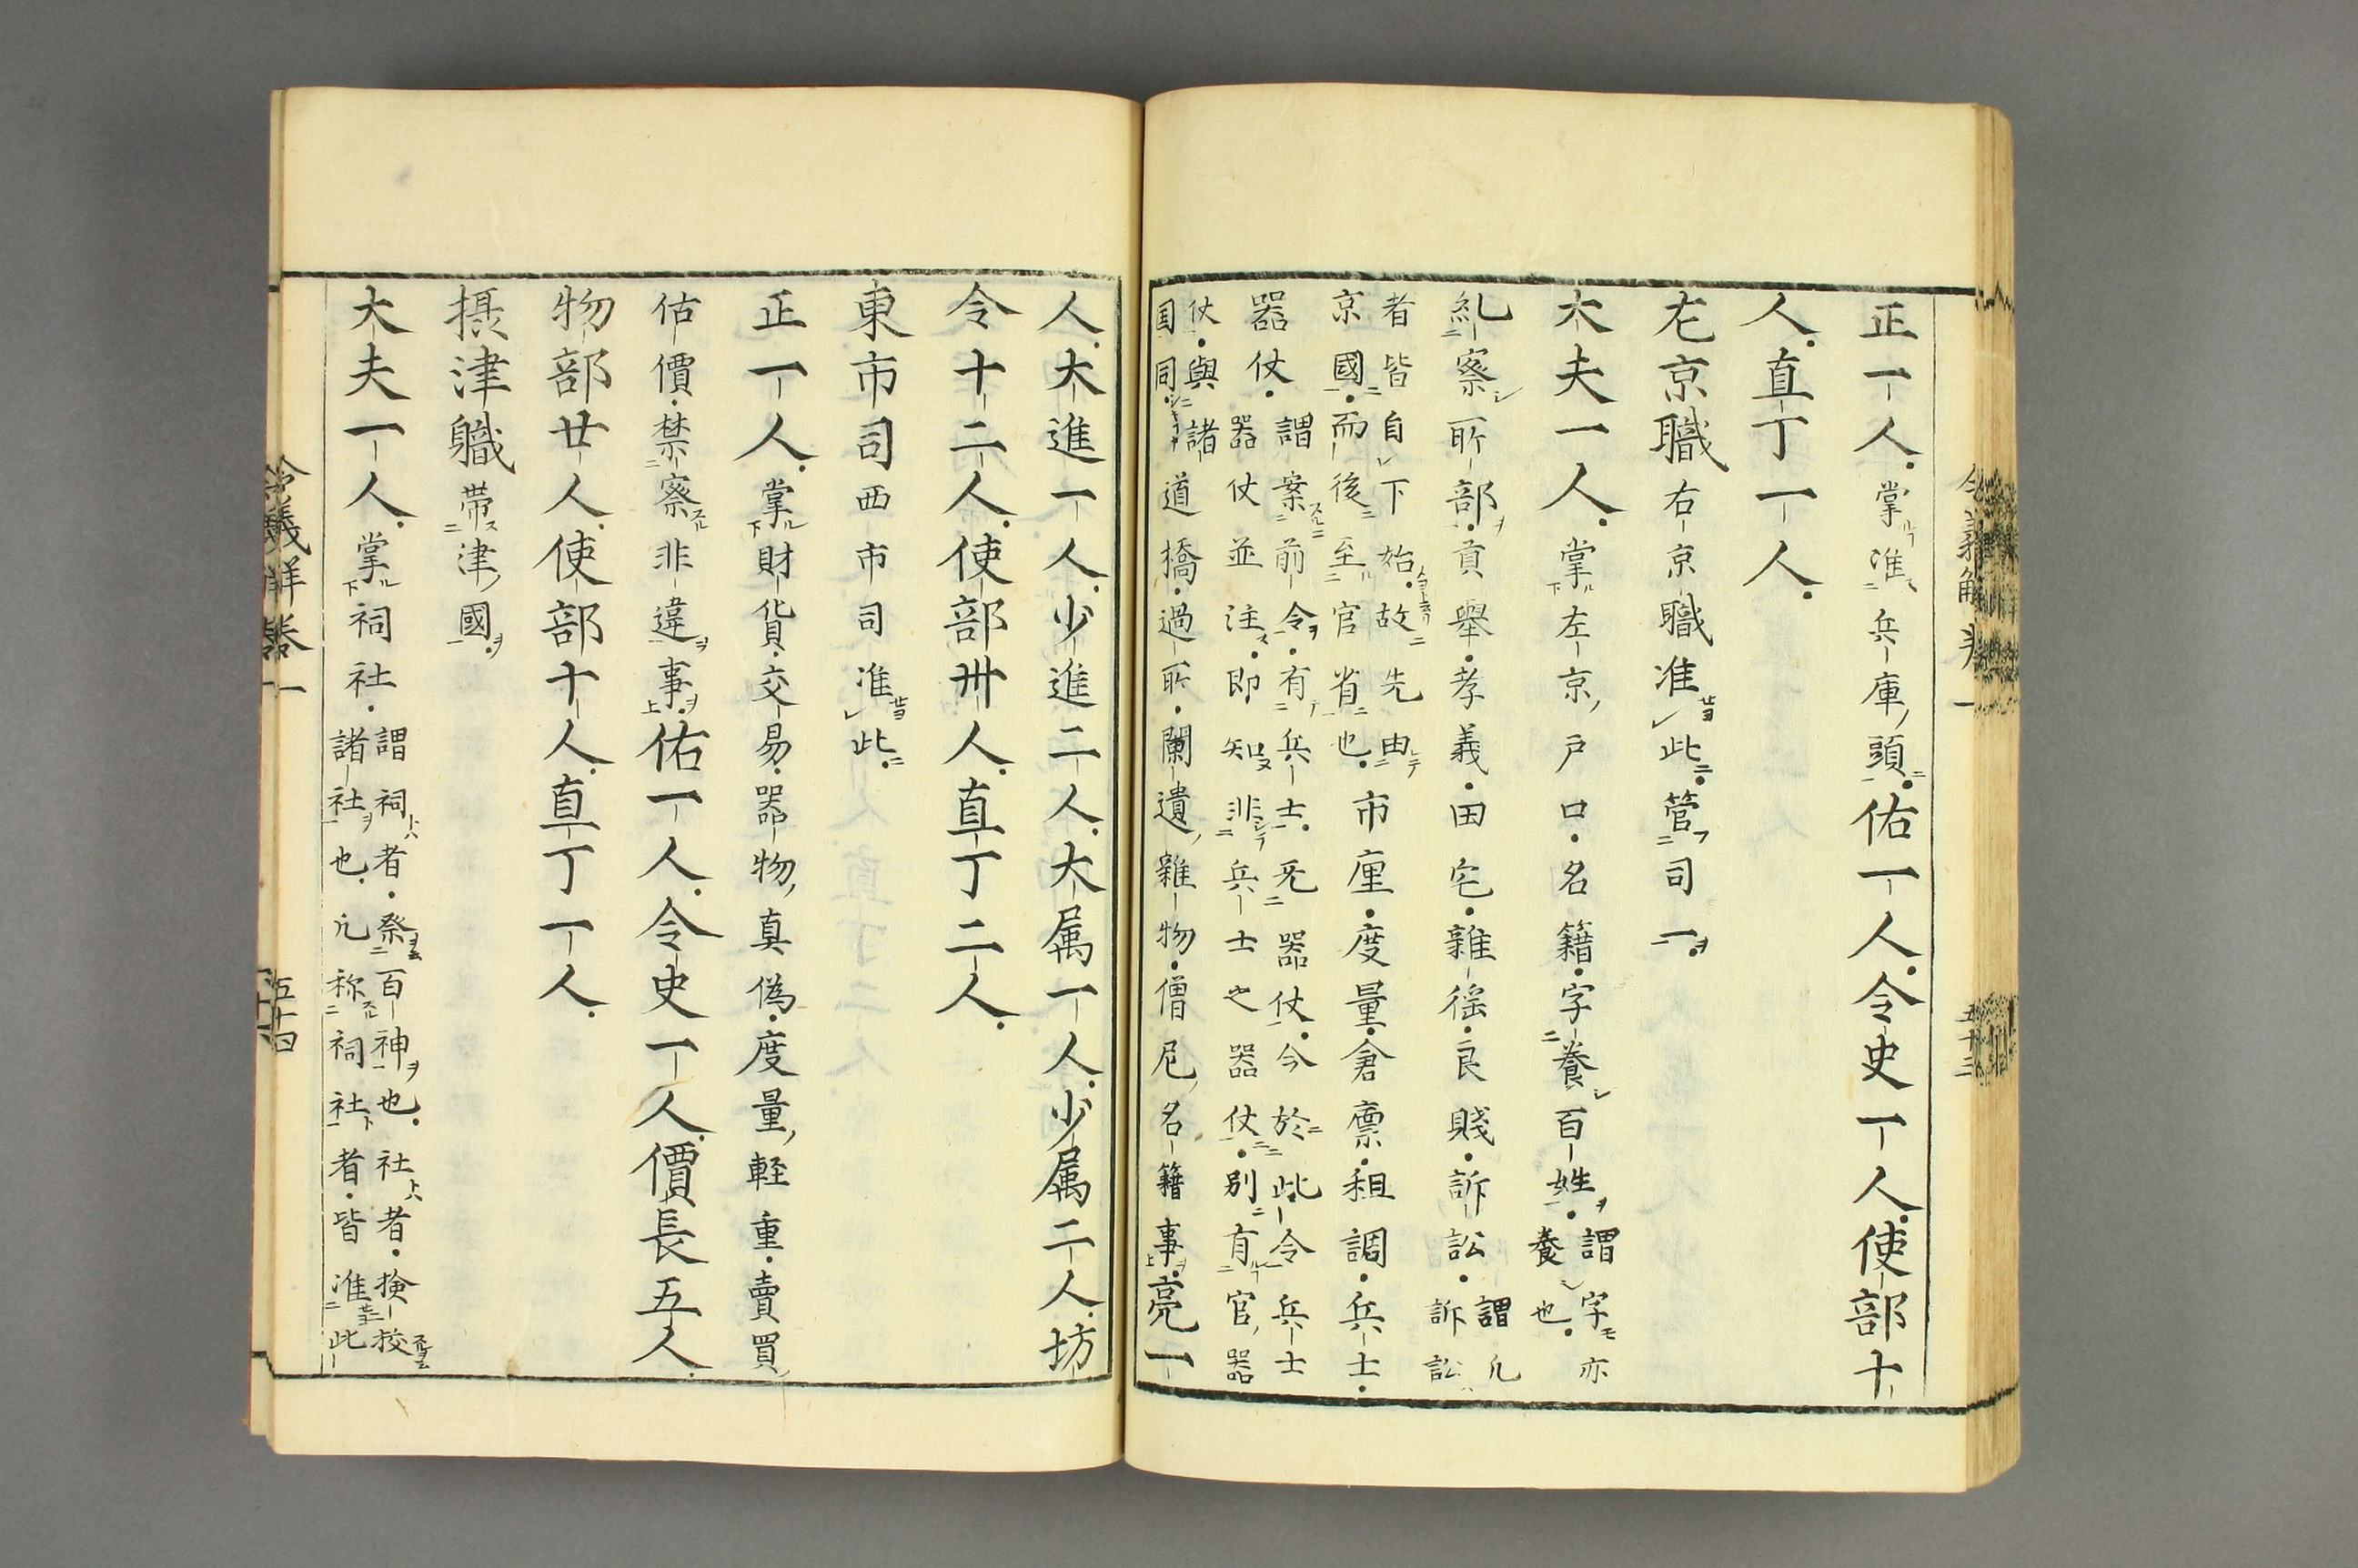 正一人掌准兵庫頭佑一人令史一人使部十
人直丁一人
左京職右京職准此管司一
大夫一人掌左京戸口名籍字養百姓謂字亦養也
糺察所部貢舉孝義田宅雜徭良賤訴訟謂凡訴訟
者皆自下始故先由京國而後至官省也市廛度量倉廩租調兵士
器仗謂案前令有兵士旡器仗今於此令兵士器仗並注即知非兵士之器仗別有官器
仗與諸国同道橋過所闌遺雜物僧尼名籍事亮一
人大進一人少進二人大属一人少属二人坊
令十二人使部卅人直丁二人
東市司西市司准此
正一人掌財貨交易器物真偽度量軽重賣買
估價禁察非違事佑一人令史一人價長五人
物部廿人使部十人直丁一人
摂津職帯津國
大夫一人掌祠社謂祠者祭百神也社者検校諸社也凡称祠社者皆准此
令義解巻一
五十四